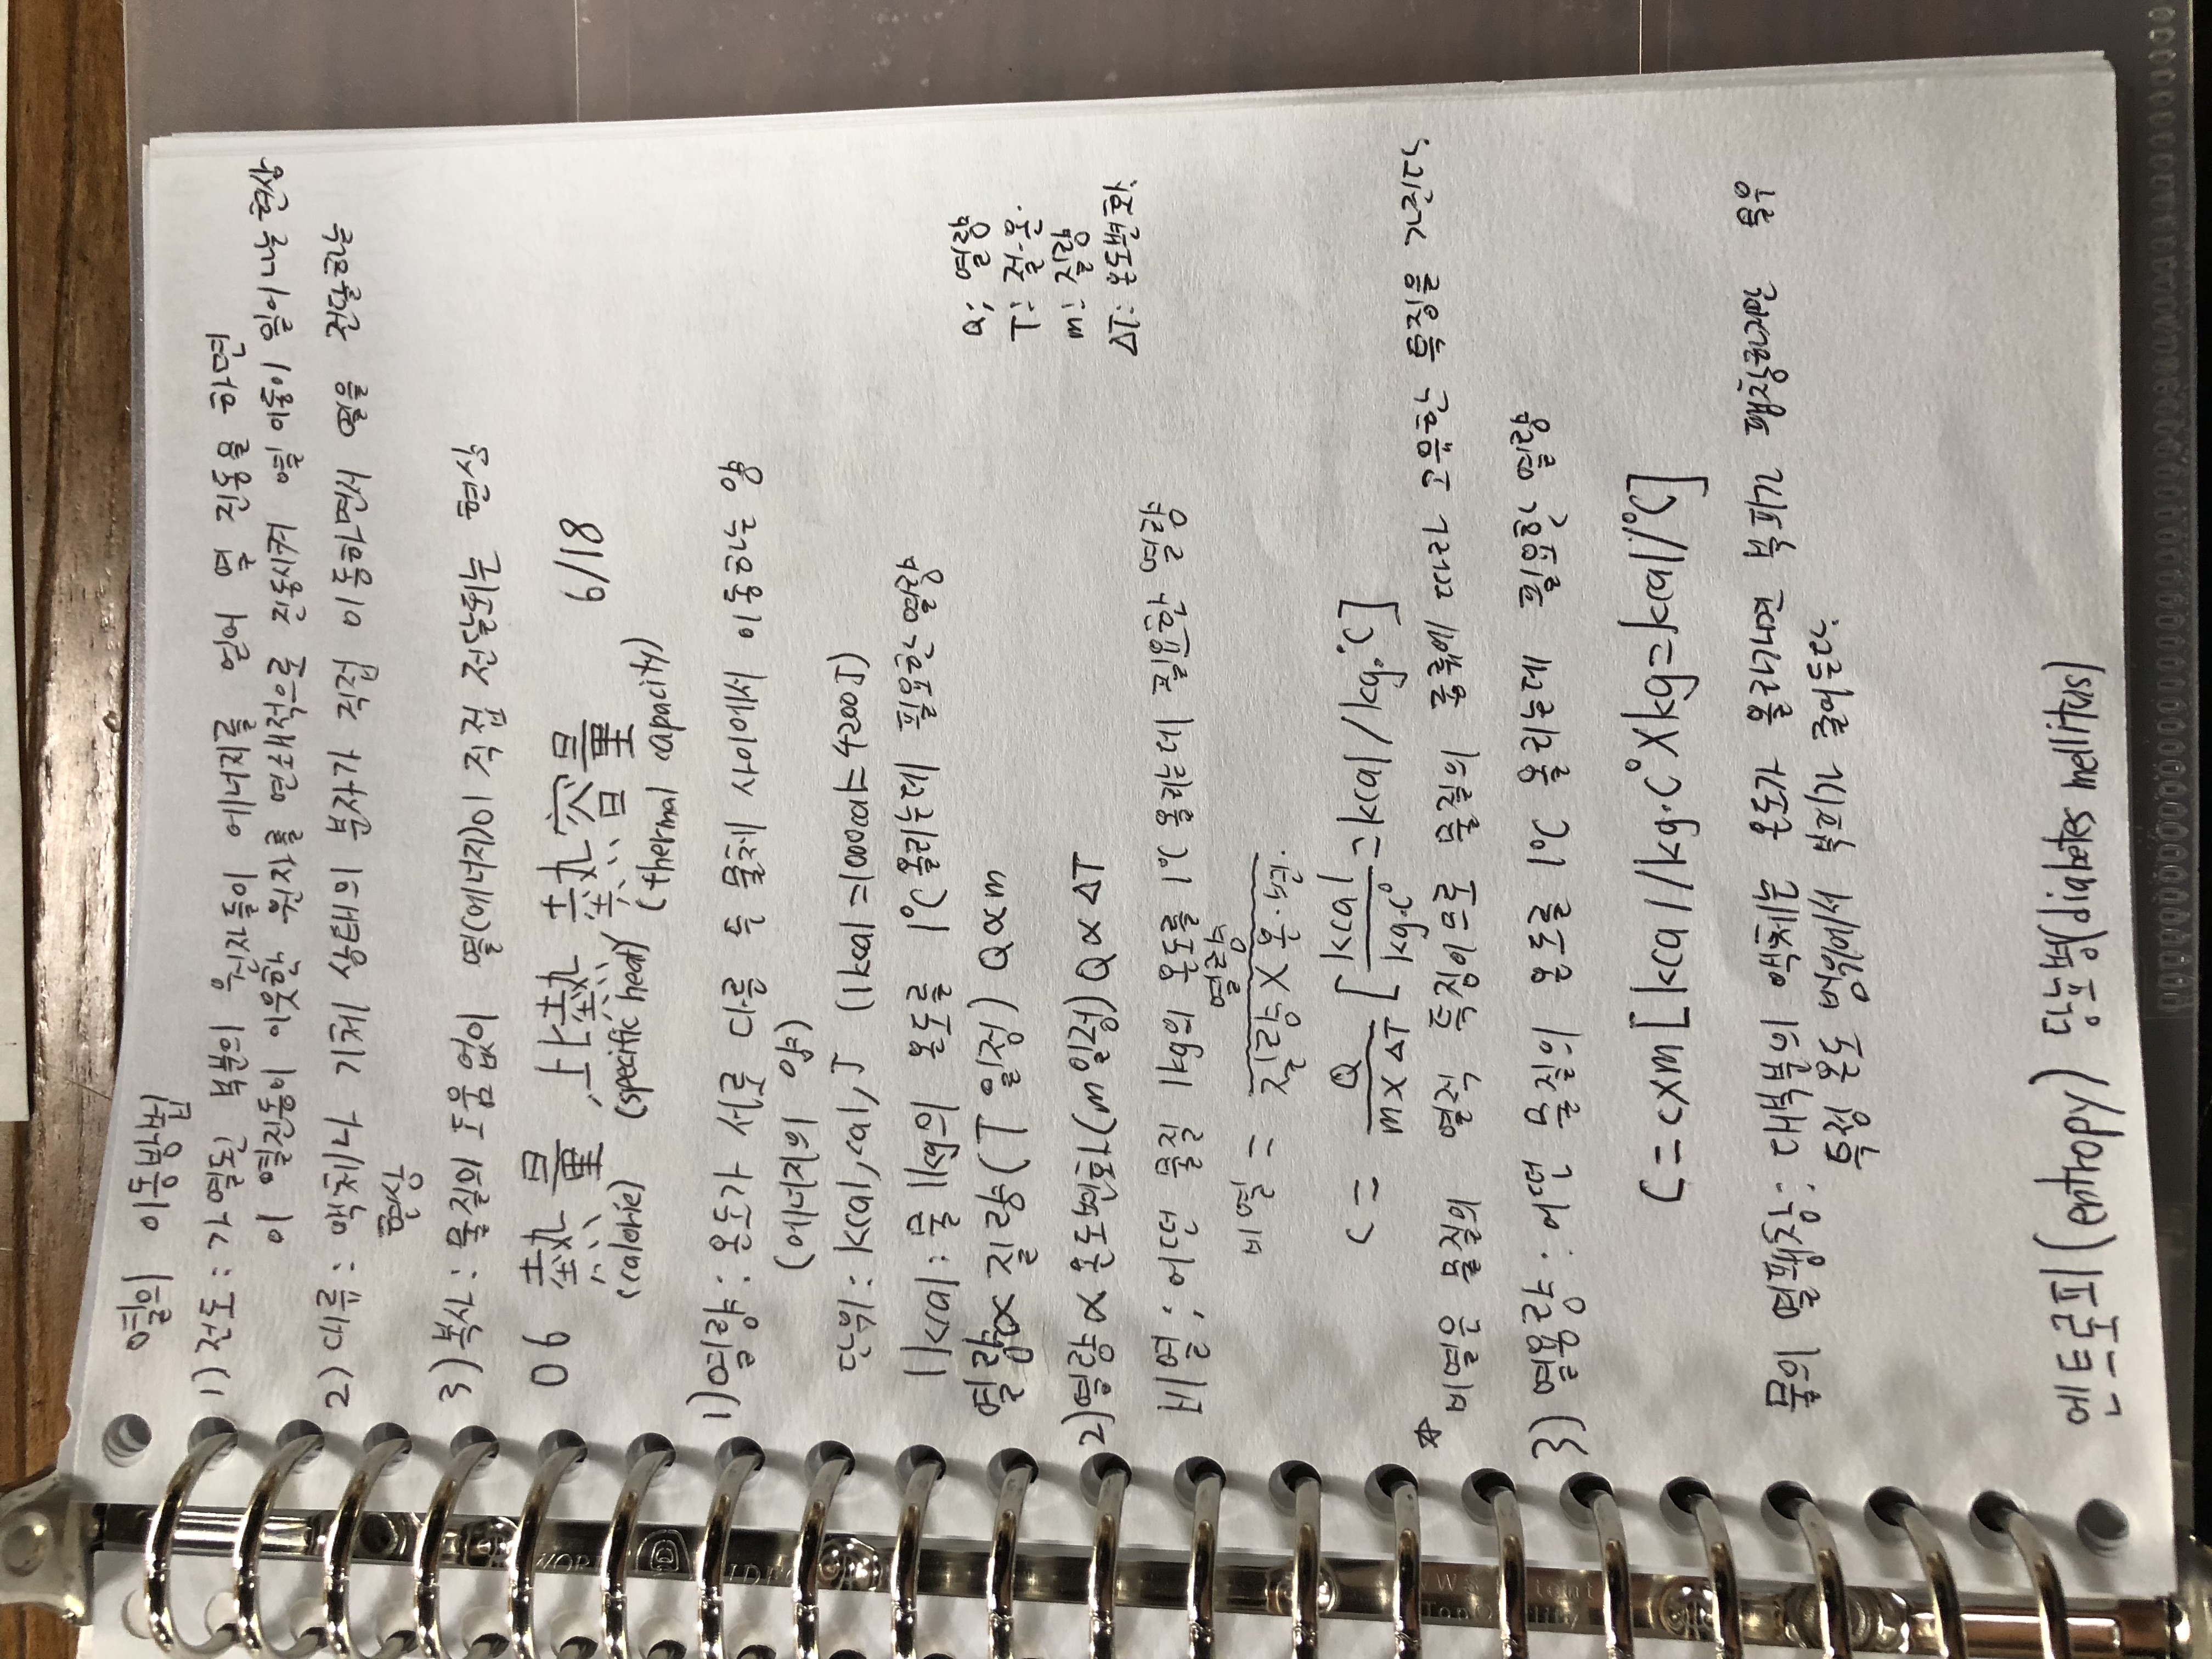 열의 이동방법
1) 전도 : 가열된 부분의 원자들이 에너지를 얻어 열 진동을 하면
이 열진동이 이웃한 원자를 연쇄적으로 진동시켜 열 이동이 일어나는 현상
2) 대류 : 액체나 기체 상태의 분자가 직접 이동하면서 열을 전달하는
현상
3) 복사 : 물질의 도움 없이 열(에너지)이 직접 전달되는 현상
06 熱量, 比熱 熱容量 6/18
(calorie) (specific heat) (thermal capacity)
1) 열량 : 온도가 서로 다른 두 물체 사이에서 이동하는 양
(에너지의 양)
단위 : kcal, cal, J (1kcal = 1000cal = 4200J)
1kcal : 물 1kg의 온도를 1℃ 올리는데 필요한 열량
열량 ∝ 질량 (T 일정) Q∝m
Q; 열량
T : 절·온.
m : 질량
ΔT : 온도변화.
2) 열량 ∝ 온도변화 (m일정) Q ∝ ΔT
비열 ; 어떤 물질 1kg의 온도를 1℃ 올리는데 필요한 열량
비열 = 열량 / 질량 × 온·변.
C = Q / m×ΔT [kcal / kg·C° = kcal / kg·℃]
* 비열은 물질의 열적 특징이므로 물질의 종류에 따라 고유한 특징을 가진다.
3) 열용량 : 어떤 물질의 온도를 1℃ 올리는데 필요한 열량
C = c×m [kcal / kg·C° × kg = kcal / ℃]
물의 열팽창 : 대부분의 액체는 온도가 올라가면 부피가 팽창하지만 물은
특정 온도 범위에서 부피가 줄어든다.
엔트로피 (entropy) 당뇨병 (diabetes mellitus)